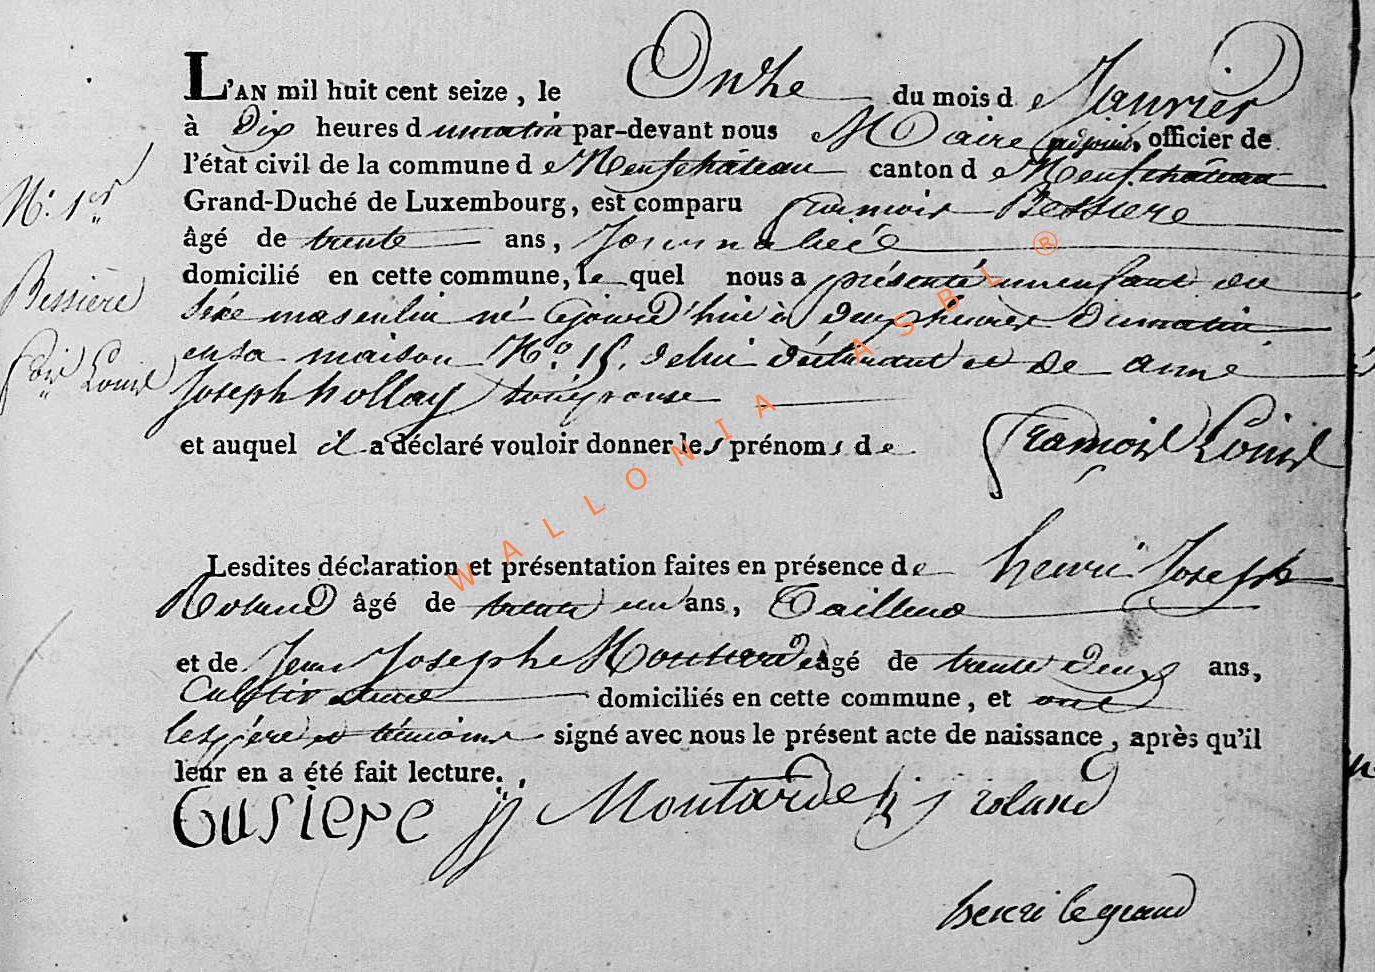 L'AN mil huit cent seize, le Onze du mois de Janvier
à Dix heures du matin par-devant nous Maire adjoint, officier de
l'état civil de la commune de Neufchâteau canton de Neufchâteau
Grand-Duché de Luxembourg, est comparu françois Bessiere
âgé de trente ans, Journalié
domicilié en cette commune, le quel nous a présenté un enfant du
séxe masculin né Cejourd'hui à deux heures du matin
en sa maison N.º 15. de lui déclarant et de anne
Joseph hollay son épouse
et auquel il a déclaré vouloir donner les prénoms de françois Louis
Lesdites déclaration et présentation faites en présence de henri Joseph
Roland âgé de trente un ans, Tailleur
et de Jean Joseph Moutarde âgé de trente deux ans,
Cultivateur domiciliés en cette commune, et ont
les père et témoins signé avec nous le présent acte de naissance, après qu'il
leur en a été fait lecture.
jj Moutarde h j roland
henri legrand
N.º 1er
Bessière
fois Louis
WALLONIA ASBL ®